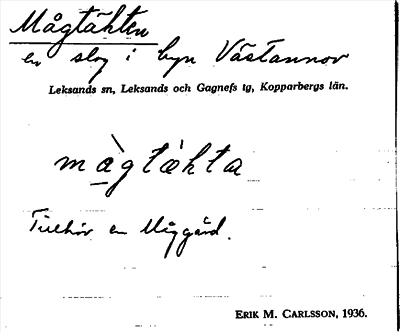 Mågtäkten
en slog i byn Västannor
Leksands sn, Leksands och Gagnefs tg, Kopparbergs län.
màgtàhta
Tillhör en Måggård.
ERIK M. CARLSSON, 1936.